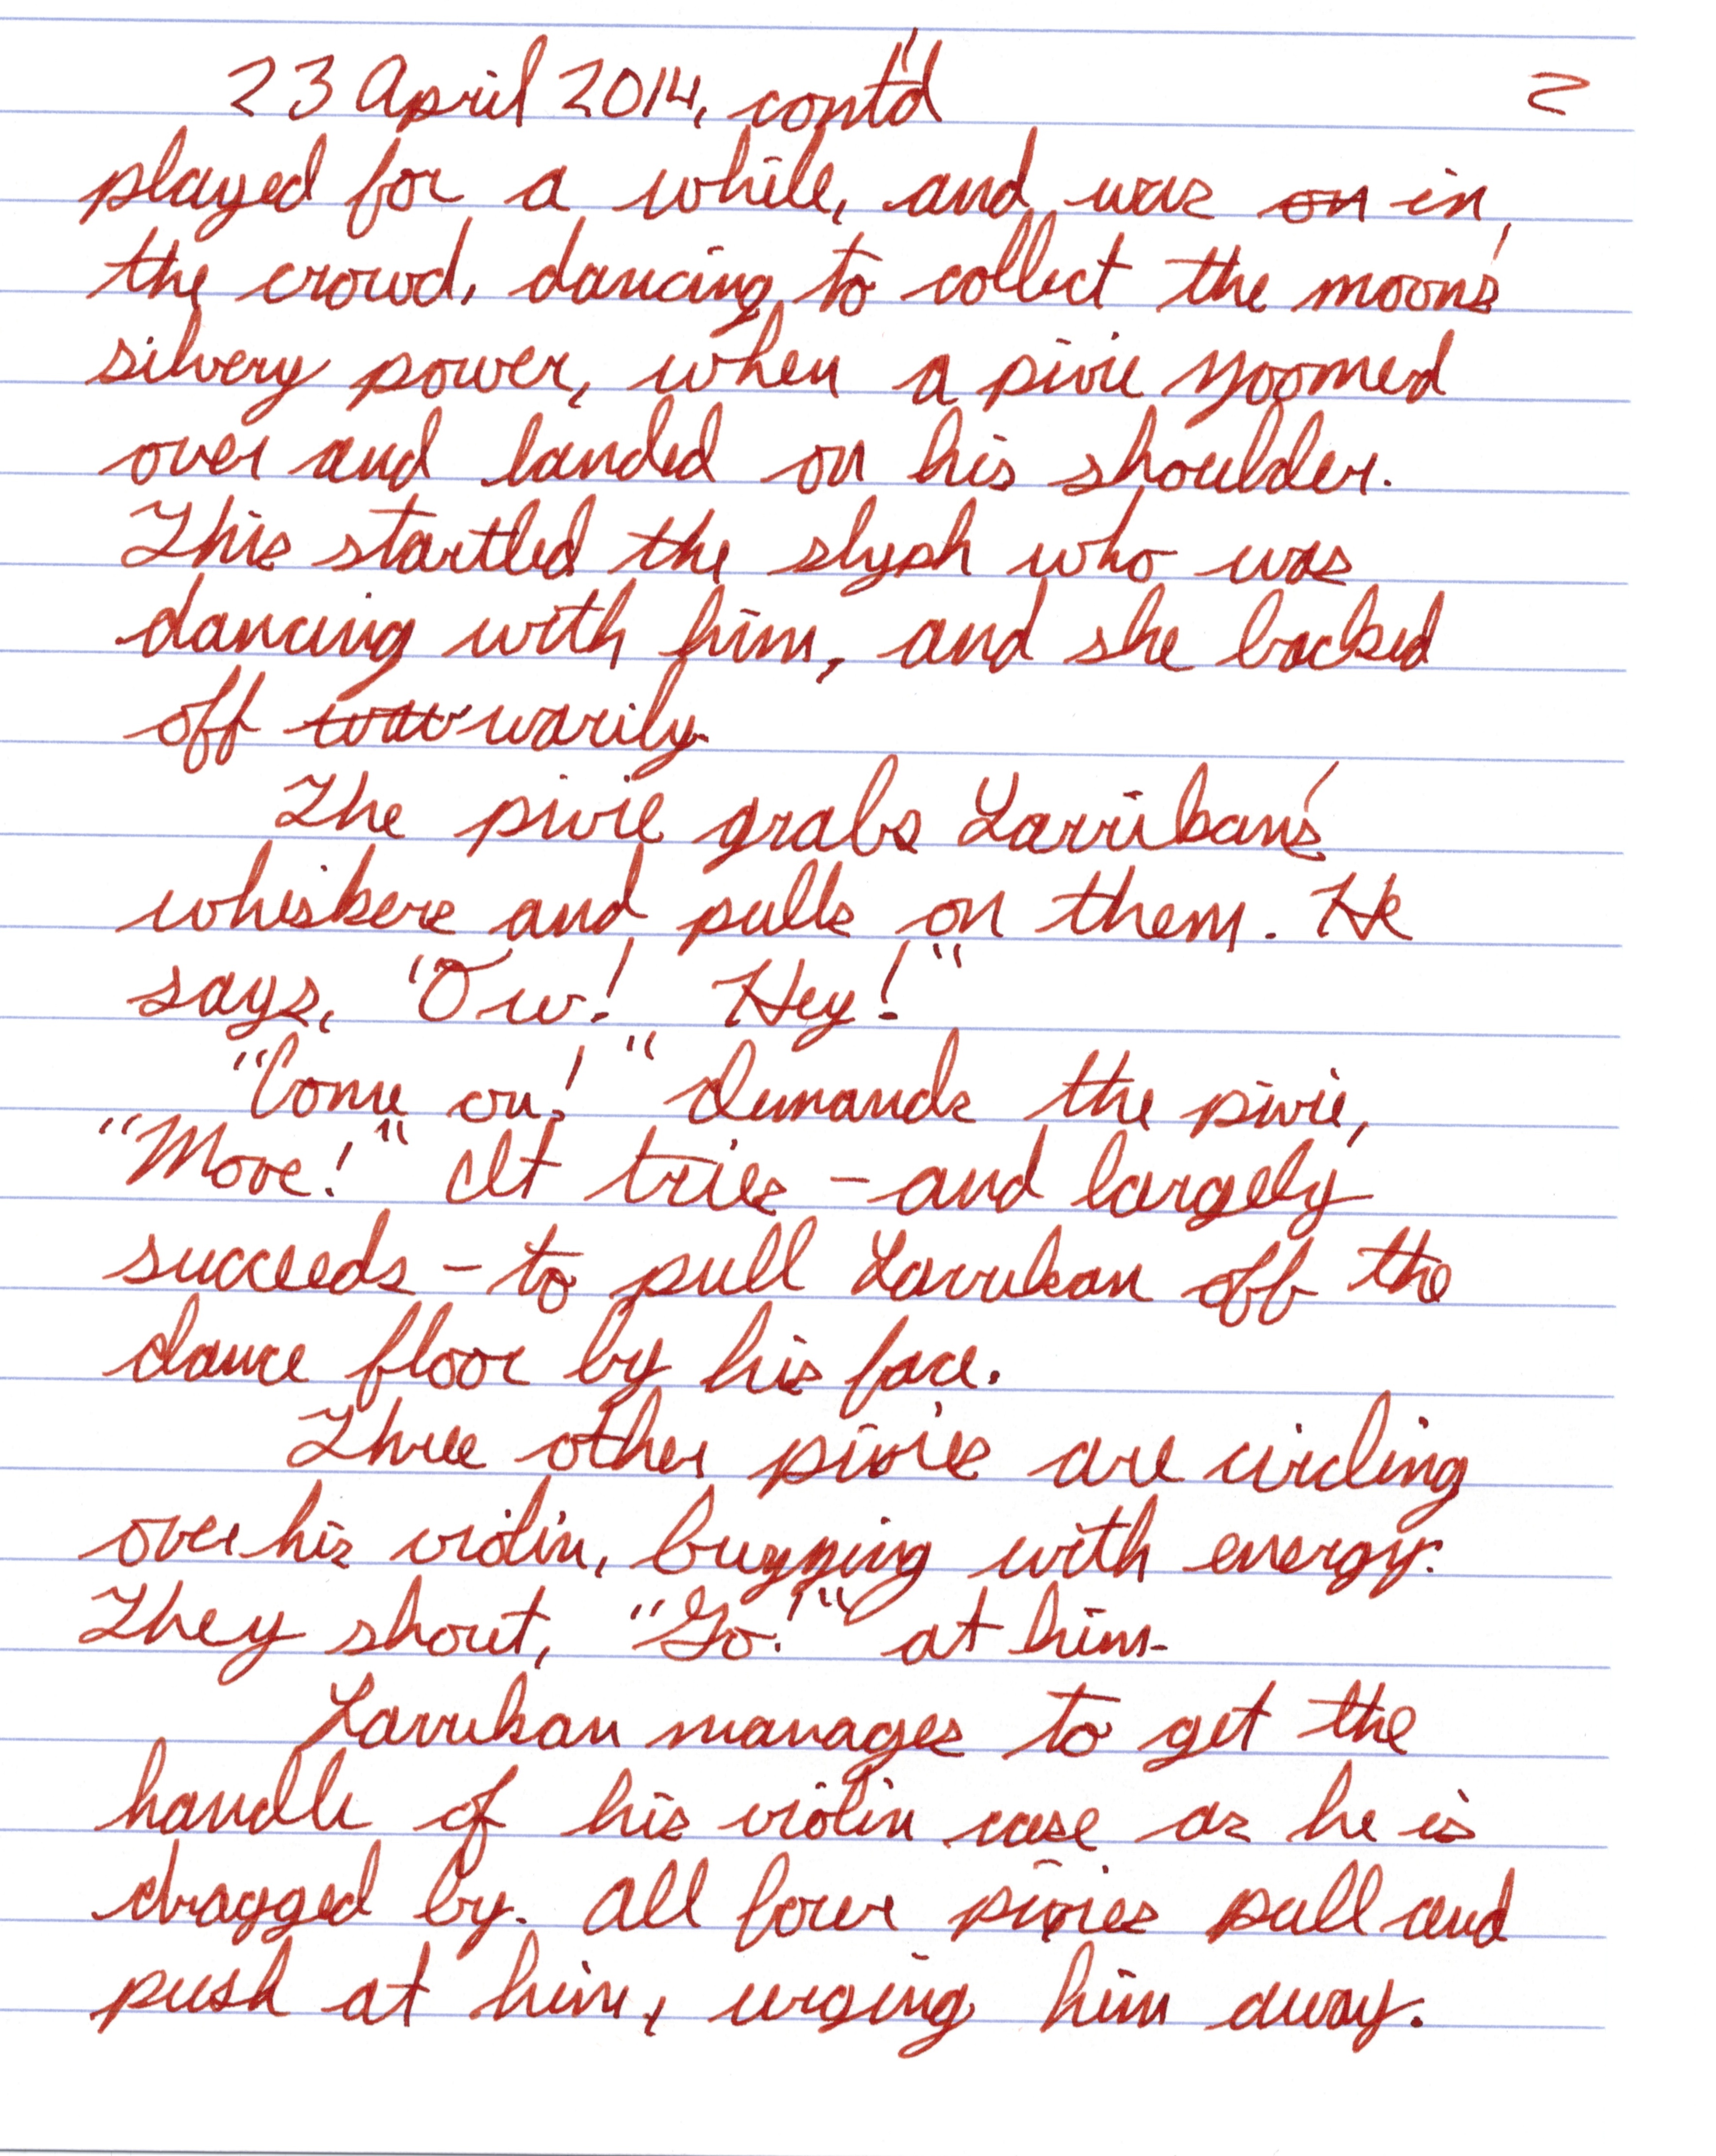 23 April 2014, cont'd 2
played for a while, and was ~~on~~ in
the crowd, dancing to collect the moon's
silvery power, when a pixie zoomed
over and landed on his shoulder.
This startled the slyph who was
dancing with him, and she backed
off warily.
The pixie grabs Larrikan's
whiskers and pulls on them. He
says, "Ow! Hey!"
"Come on!" demands the pixie,
"Move!" It tries – and largely
succeeds – to pull Larrikan off the
dance floor by his face.
Three other pixies are circling
over his violin, buzzing with energy.
They shout, "Go!" at him.
Larrikan manages to get the
handle of his violin case as he is
dragged by. All four pixies pull and
push at him, urging him away.